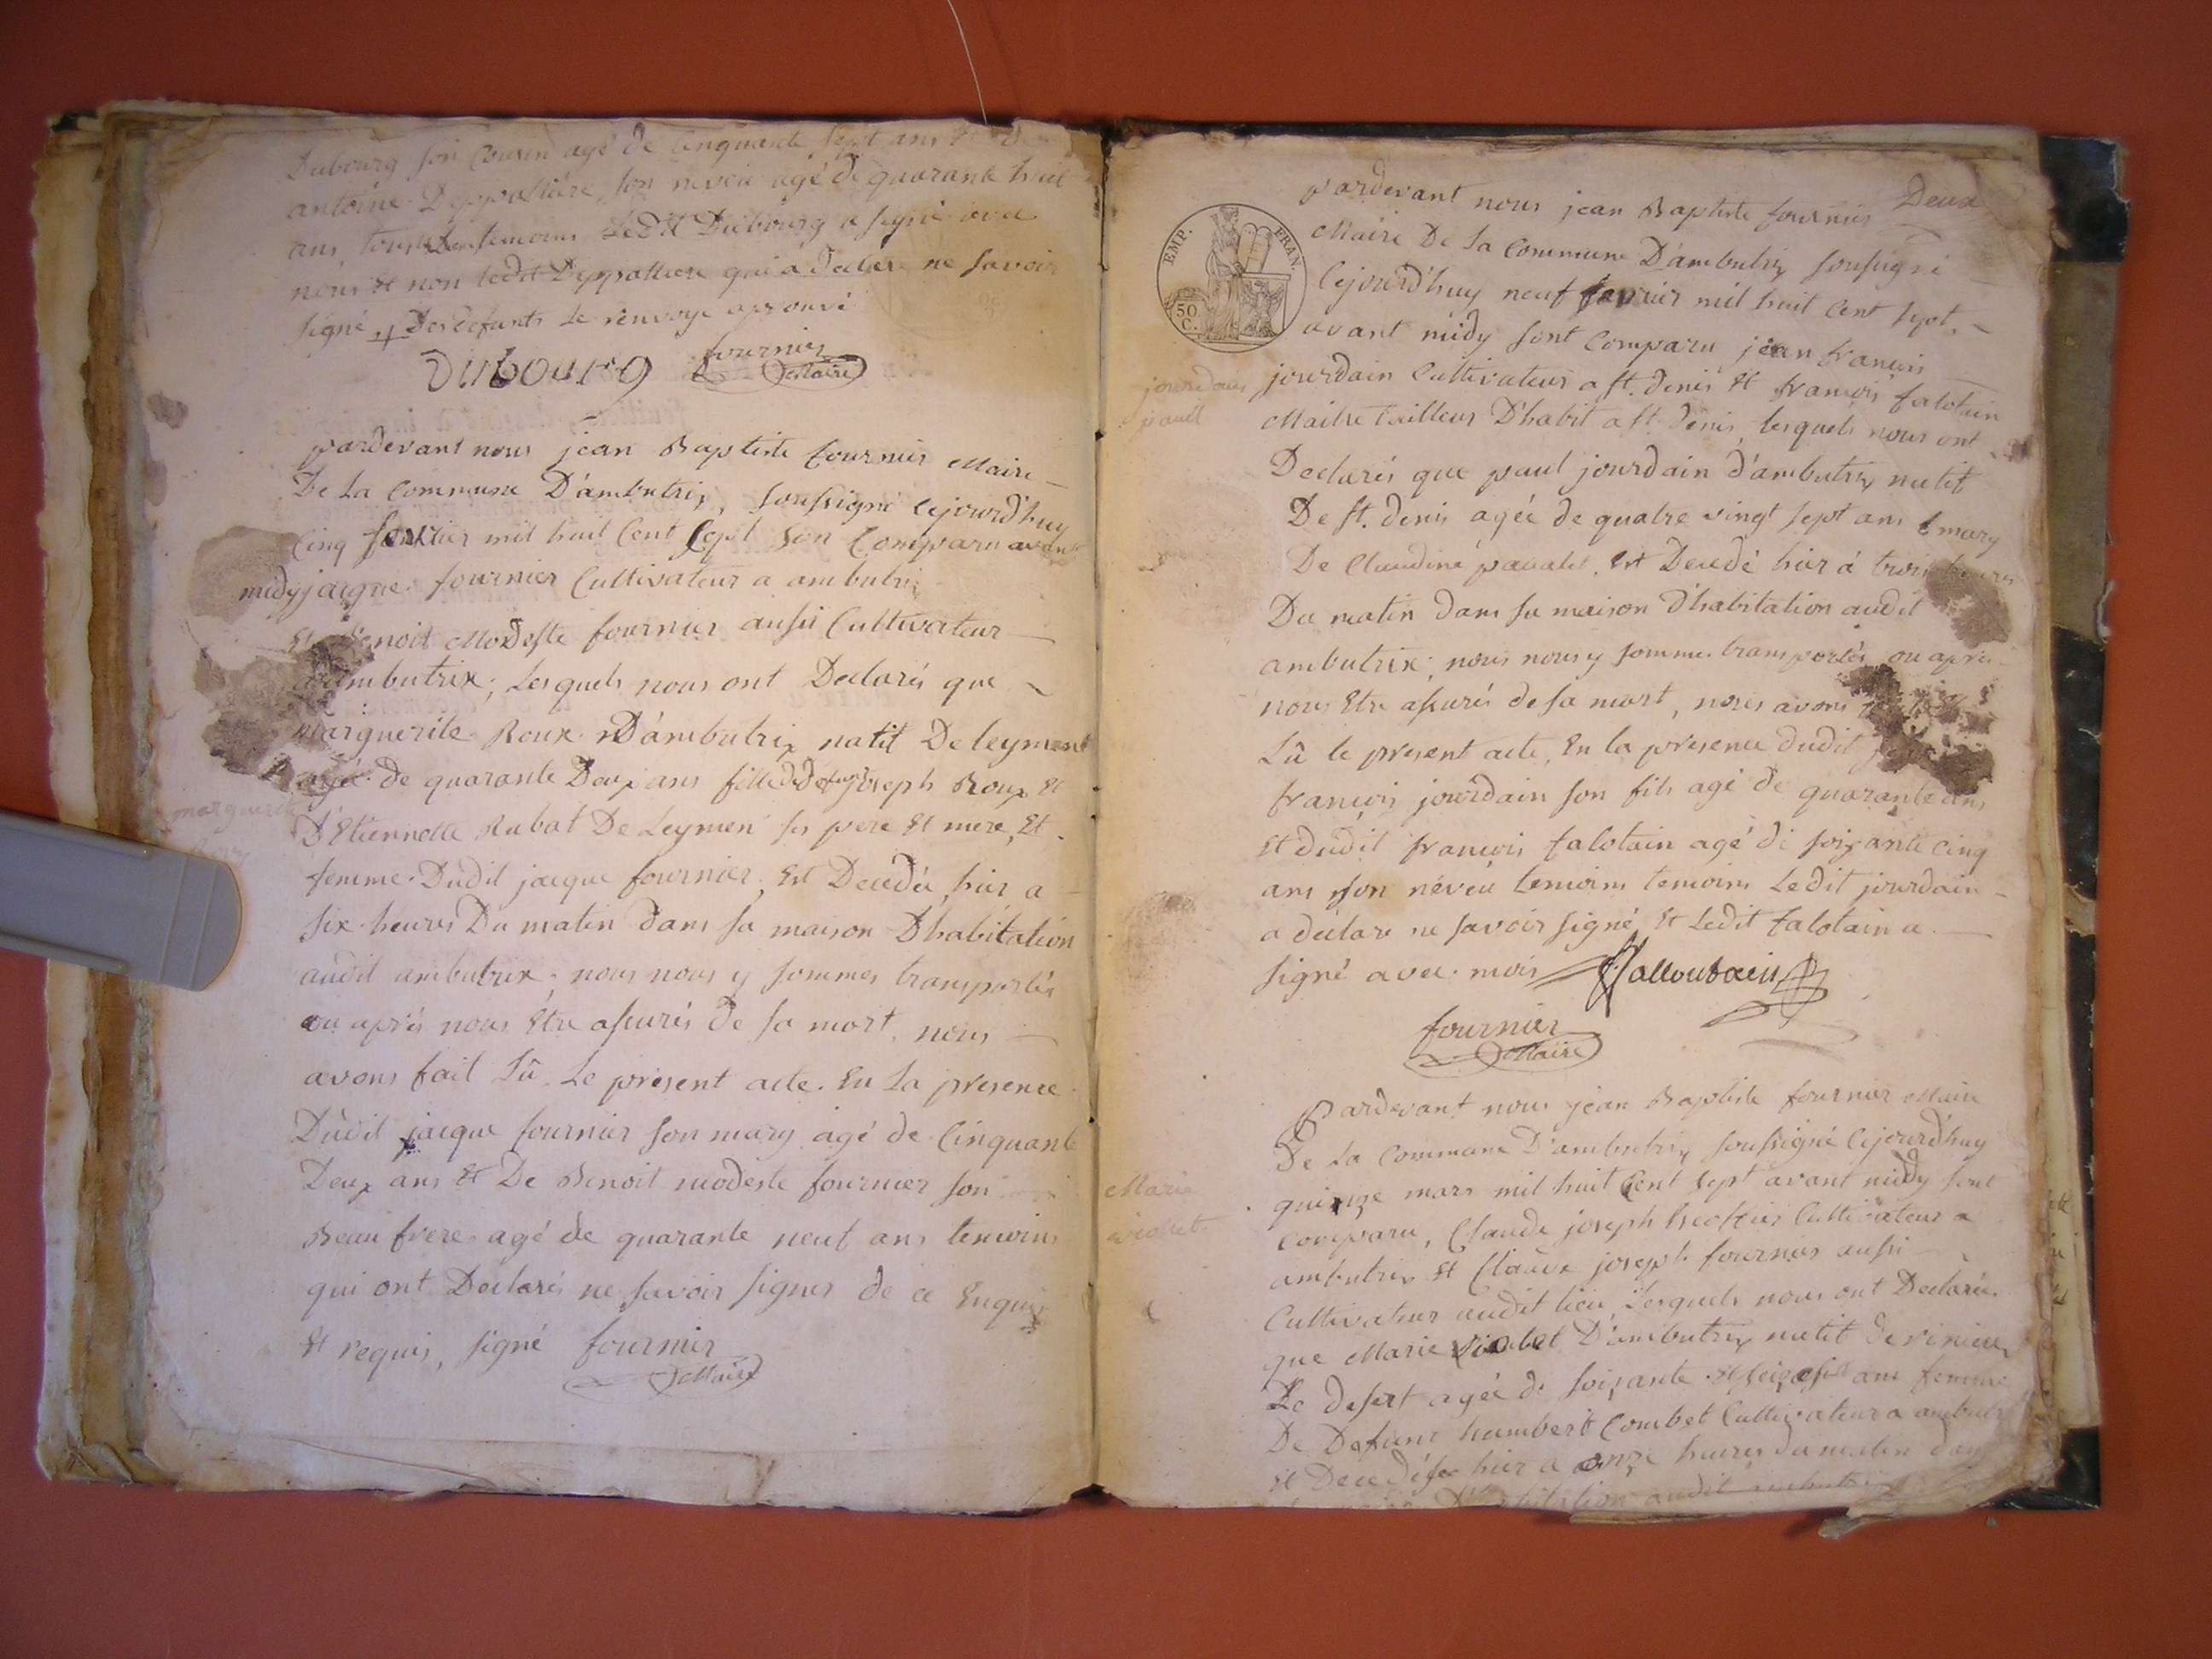 Dubourg son Cousin agé de Cinquante sept ans Et de
antoine Deppallière, son neveu agé de quarante huit
ans, tous temoins Ledit Dubourg a signé avec
nous Et non ledit Deppalliere qui a declaré ne savoir
signé Des defunts Le renvoye aprouvé
Dubourg fournier
Maire
pardevant nous jean Baptiste fournier Maire
De La Commune D'ambutrix, soussigné Cejourd'huy
Cinq fevrier mil huit Cent Sept son Comparu avant
midy jacque fournier Cultivateur a ambutrix
Et Benoit Modeste fournier aussi Cultivateur
a ambutrix; Lesquels nous ont Declarés que
marguerite Roux D'ambutrix natif De leyment
agée de quarante Deux ans fille de defunt joseph Roux Et
D'Etiennette Rubat De Leymen ses pere Et mere, Et
marguerite
femme Dudit jacque fournier, Est Decedée, hier a
six heures Du matin dans sa maison D'habitation
audit ambutrix; nous nous y sommes transportés
ou aprés nous Etre assurés de sa mort, nous
avons fait Lû Le présent acte. En La presence
Dudit jacque fournier son mary agé de Cinquante
Deux ans Et De Benoit modeste fournier son
Beau frere agé de quarante neuf ans temoins
qui ont Déclarés ne savoir signer de ce Enquis
Et requis, signé fournier
Maire
Deux
pardevant nous jean Baptiste fournier
Maire De La Commune D'ambutrix soussigné
EMP. FRAN.
50 C.
Cejourd'huy neuf fevrier mil huit Cent sept,
avant midy sont Comparu jean francois
jourdain
paul
jourdain Cultivateur a st. denis Et francois talotain
Maitre tailleur D'habit a st. Denis, lesquels nous ont
Declarés que paul jourdain d'ambutrix natif
De st. denis agée de quatre vingt sept ans mary
De Claudine Est Decedé hier á trois heures
Du matin dans sa maison d'habitation audit
ambutrix; nous nous y somme transportés ou aprés
nous Etre assurés de sa mort, nous avons
Lû le present acte, En la presence dudit
françois jourdain son fils agé de quarante ans
Et dudit françois talotain agé de soixante cinq
ans son néveu temoins temoins Ledit jourdain
a déclare ne savoir signé Et Ledit talotain a
signé avec mois Talloutain
fournier
Maire
Pardevant nous jean Baptiste fournier Maire
De La Commune D'ambutrix soussigné Cejourd'huy
quinze mars mil huit Cent sept avant midy sont
Marie
violet
Comparu, Claude joseph Cultivateur a
ambutrix Et Claude joseph fournier aussi
Cultivateur audit lieu, Lesquels nous ont Declarés
que Marie violet D'ambutrix natif de
Le desert agée de soixante ans femme
De Defunt humbert Combet Cultivateur a ambutrix
Et Decedée hier a onze heures du matin dans
D'habitation audit ambutrix